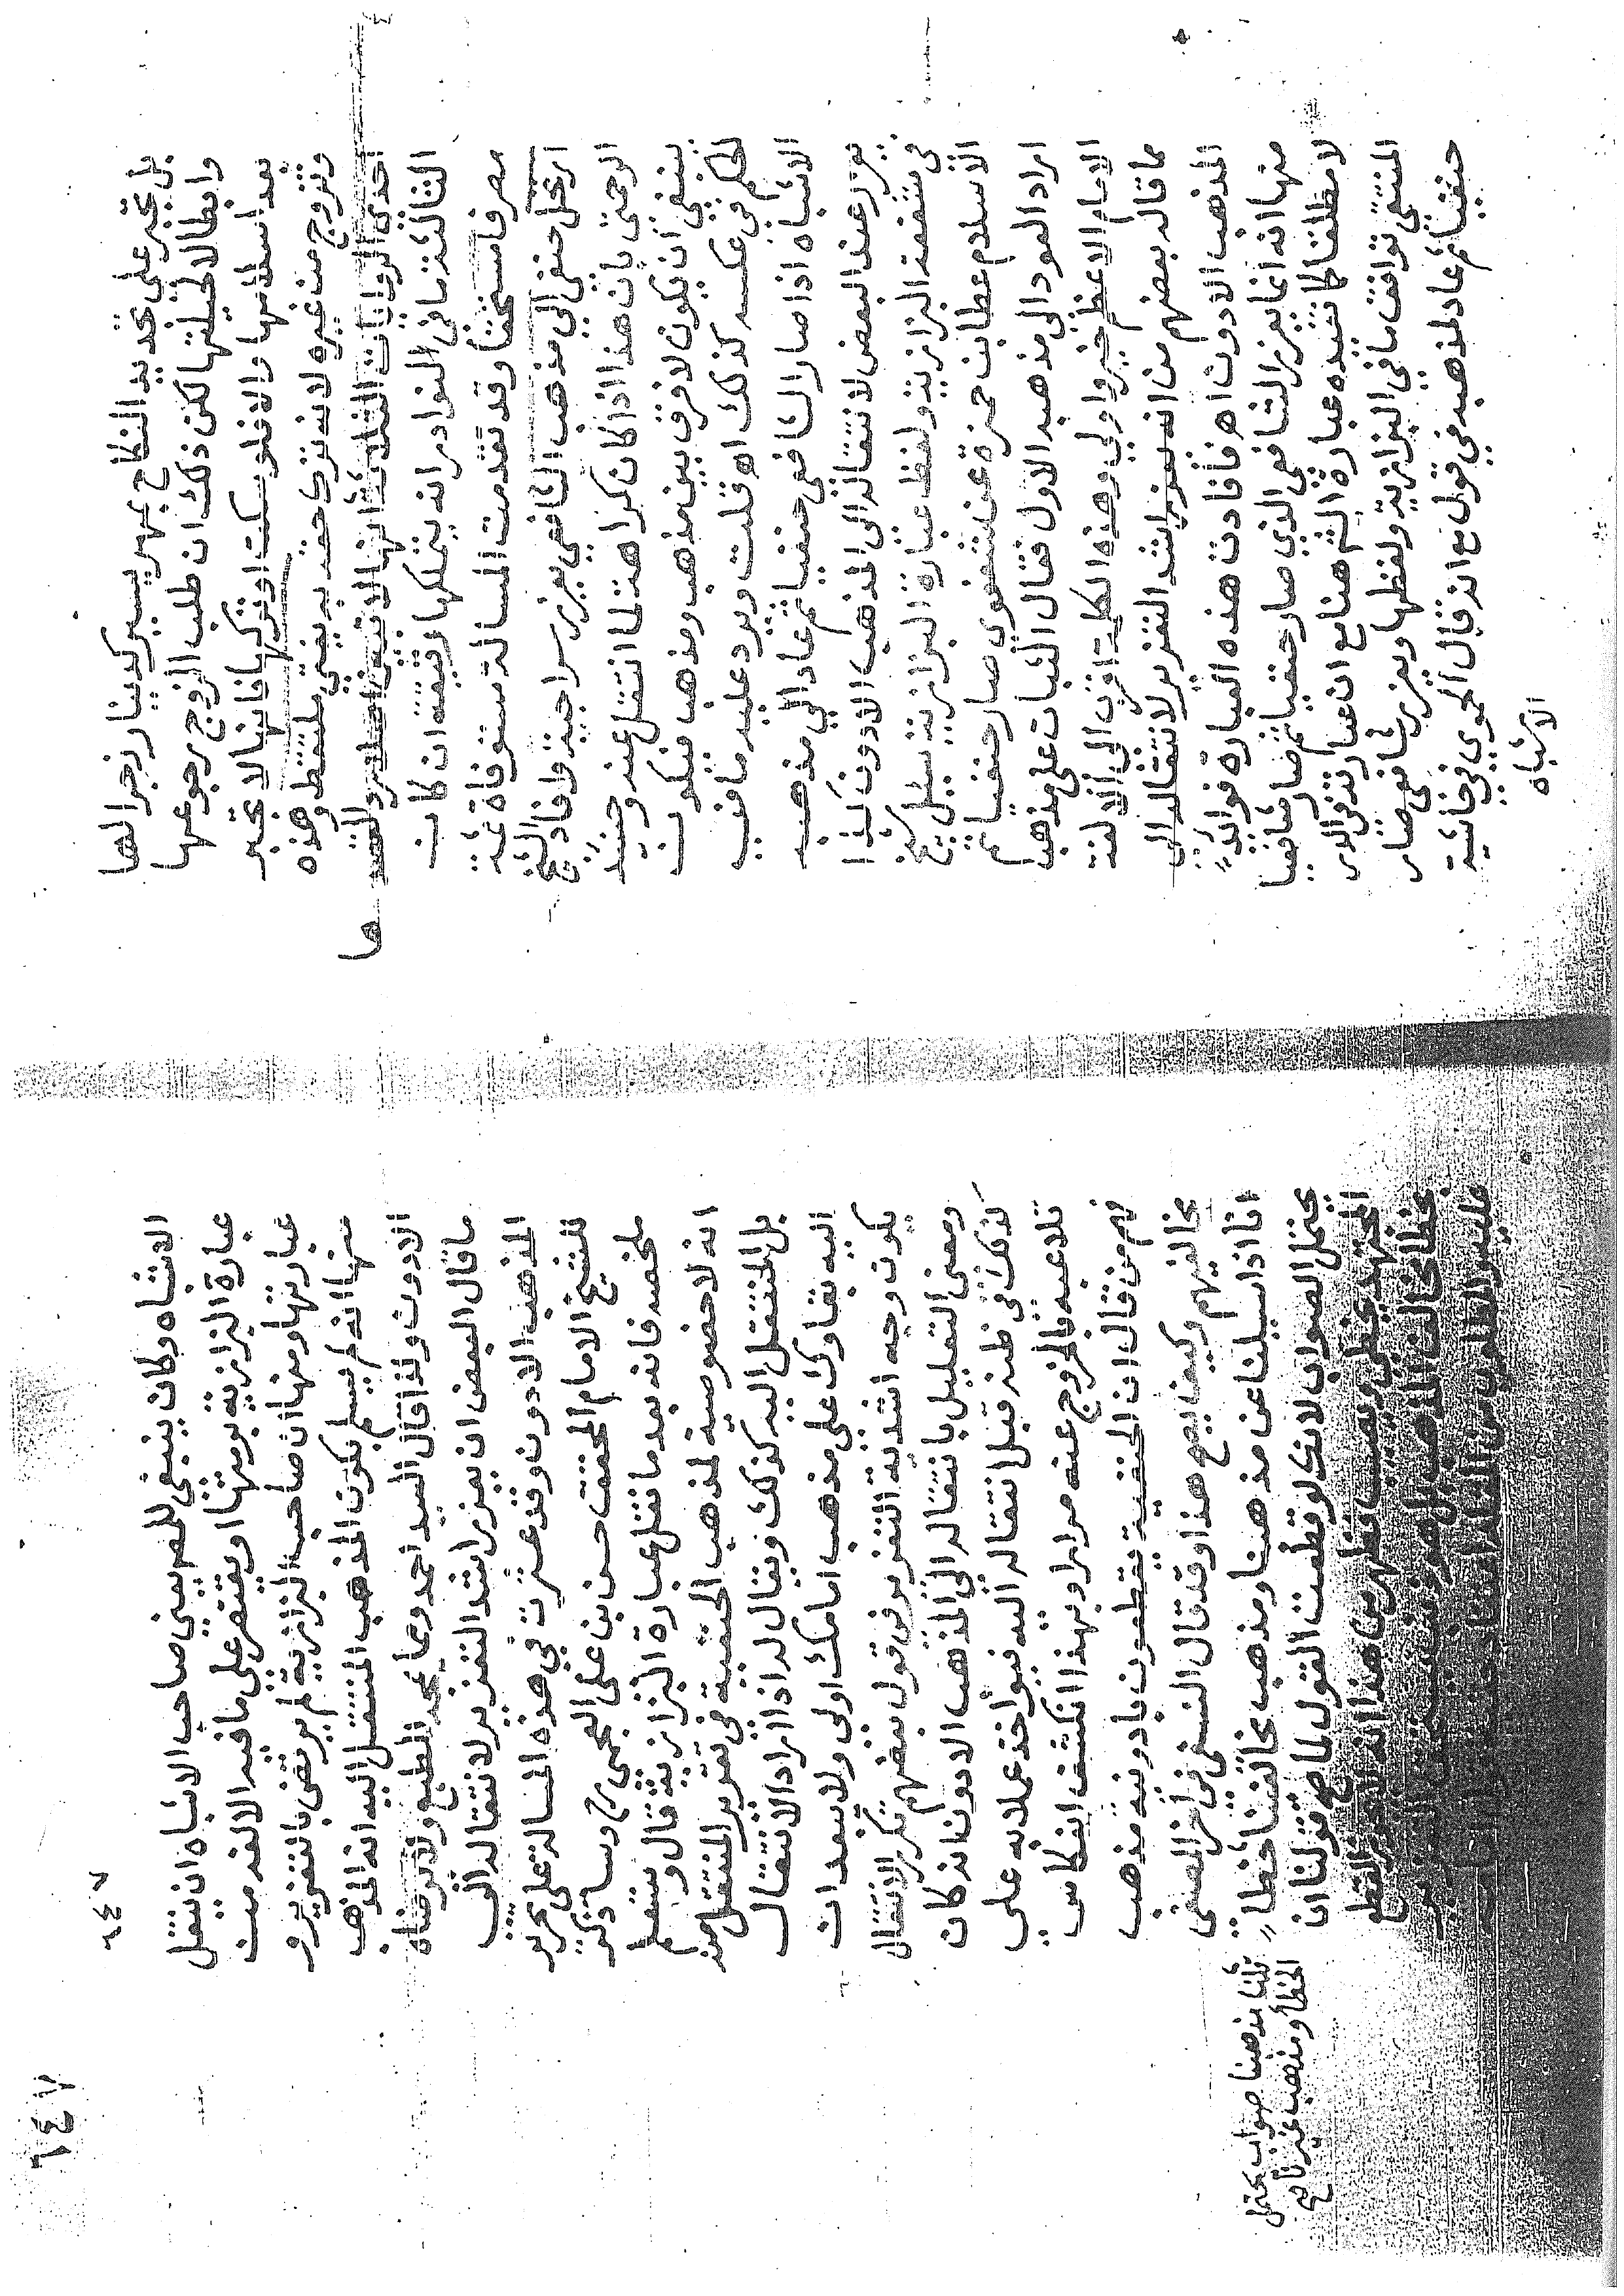 بل تجبر على تجديد النكاح بمهر يسير كدينار زجرا لها
وابطالا لحيلتها لكن ذلك ان طلب الزوج رجوعها
بعد اسلامها والا فلو سكت او تركها فانها لا تجبر
وتزوج من غيره لانه ترك حقه به يفتى ملتقط وهذه
احدى الروايات الثلاث
الثالثة ما فى النوادر انه يتملكها رقيقة ان كان
مصرفا مستحقا وقد تقدمت المسالة مستوفاة ثمة
ارتحل حنفى الى مذهب الشافعى يعزر سراجية وافاد الشيخ
الرحمتى بان هذا اذا كان كراهة لما انتقل عنه وحينئذ
ينبغى ان يكون لا فرق بين مذهب ومذهب فيكون
الحكم فى عكسه كذلك اهـ قلت ويرد عليه ما فى
الاشباه اذا صار الشافعى حنفيا ثم عاد الى مذهبه
يعزر عند البعض لانتقاله الى المذهب الادون كذا
فى شفعة البزازية ولفظ عبارة البزازية سئل شيخ
الاسلام عطا بن حمزة عن شفعوى صار حنفيا ثم
اراد العود الى مذهبه الاول فقال الثبات على مذهب
الامام الاعظم خير واولى وهذه الكلمة اقرب الى الالفة
مما قاله بعضهم من انه يعزر اشد التعزير لانتقاله الى
المذهب الادون اهـ فافادت هذه العبارة فوائد
منها انه انما يعزر الشافعى الذى صار حنفيا ثم صار شافعيا
لا مطلقا كما تفيده عبارة الشم هنا مع ان عبارته فى الدر
المنتقى توافق ما فى البزازية ولفظها ويعزر شافعى صار
حنفيا ثم عاد لمذهبه فى قول مع انه قال الحموى فى حاشية
الاشباه
٦٤٧
٦٤٧
الاشباه وكان ينبغى للمص يعنى صاحب الاشباه ان ينقل
عبارة البزازية برمتها او يقتصر على ما فيه الالفة من
عبارتها ومنها ان صاحب البزازية لم يرتض بالتعزير و
منها انه لم يسلم بكون المذهب المنتقل اليه انه المذهب
الادون ولذا قال السيد احمد ومما يمجه الطبع ولا يرضاه
ما قال البعض ان يعزر اشد التعزير لانتقاله الى
المذهب الادون وقد عثرت فى هذه المسالة على تحرير
للشيخ الامام المحقق حسن بن على العجمى رح وساذكر
ملخصه فانه بعد ما نقل عبارة البزازية قال ويعلم
انه لا خصوصية لمذهب الحنفية فى تعزير المنتقل عنه
بل المنتقل اليه كذلك ويقال له اذا اراد الانتقال
اليه بقاوك على مذهب امامك اولى ولا يبعد ان
يكون وجه اشدية التعزير فى قول بعضهم تكرر الانتقال
ومعنى التعليل بانتقاله الى المذهب الادون انه كان
كذلك فى ظنه قبل انتقاله اليه فيواخذ عملا به على
تلاعبه فالخروج عنه مرارا وبهذا انكشف انعكاس
فهم من قال ان الحنفية يقطعون بادونية مذهب
مخالفيهم وكيف يصح هذا وقد قال النسفى فى اخر المصفى
انا اذا سئلنا عن مذهبنا ومذهب مخالفينا
قلنا مذهبنا صواب يحتمل
الخطا ومذهب غيرنا
خطا
يحتمل الصواب لانك لو قطعت القول لما صح قولنا ان
المجتهد يخطى ويصيب فظهر من هذا انه لا يجوز القطع
بخطا مخالف المذهب